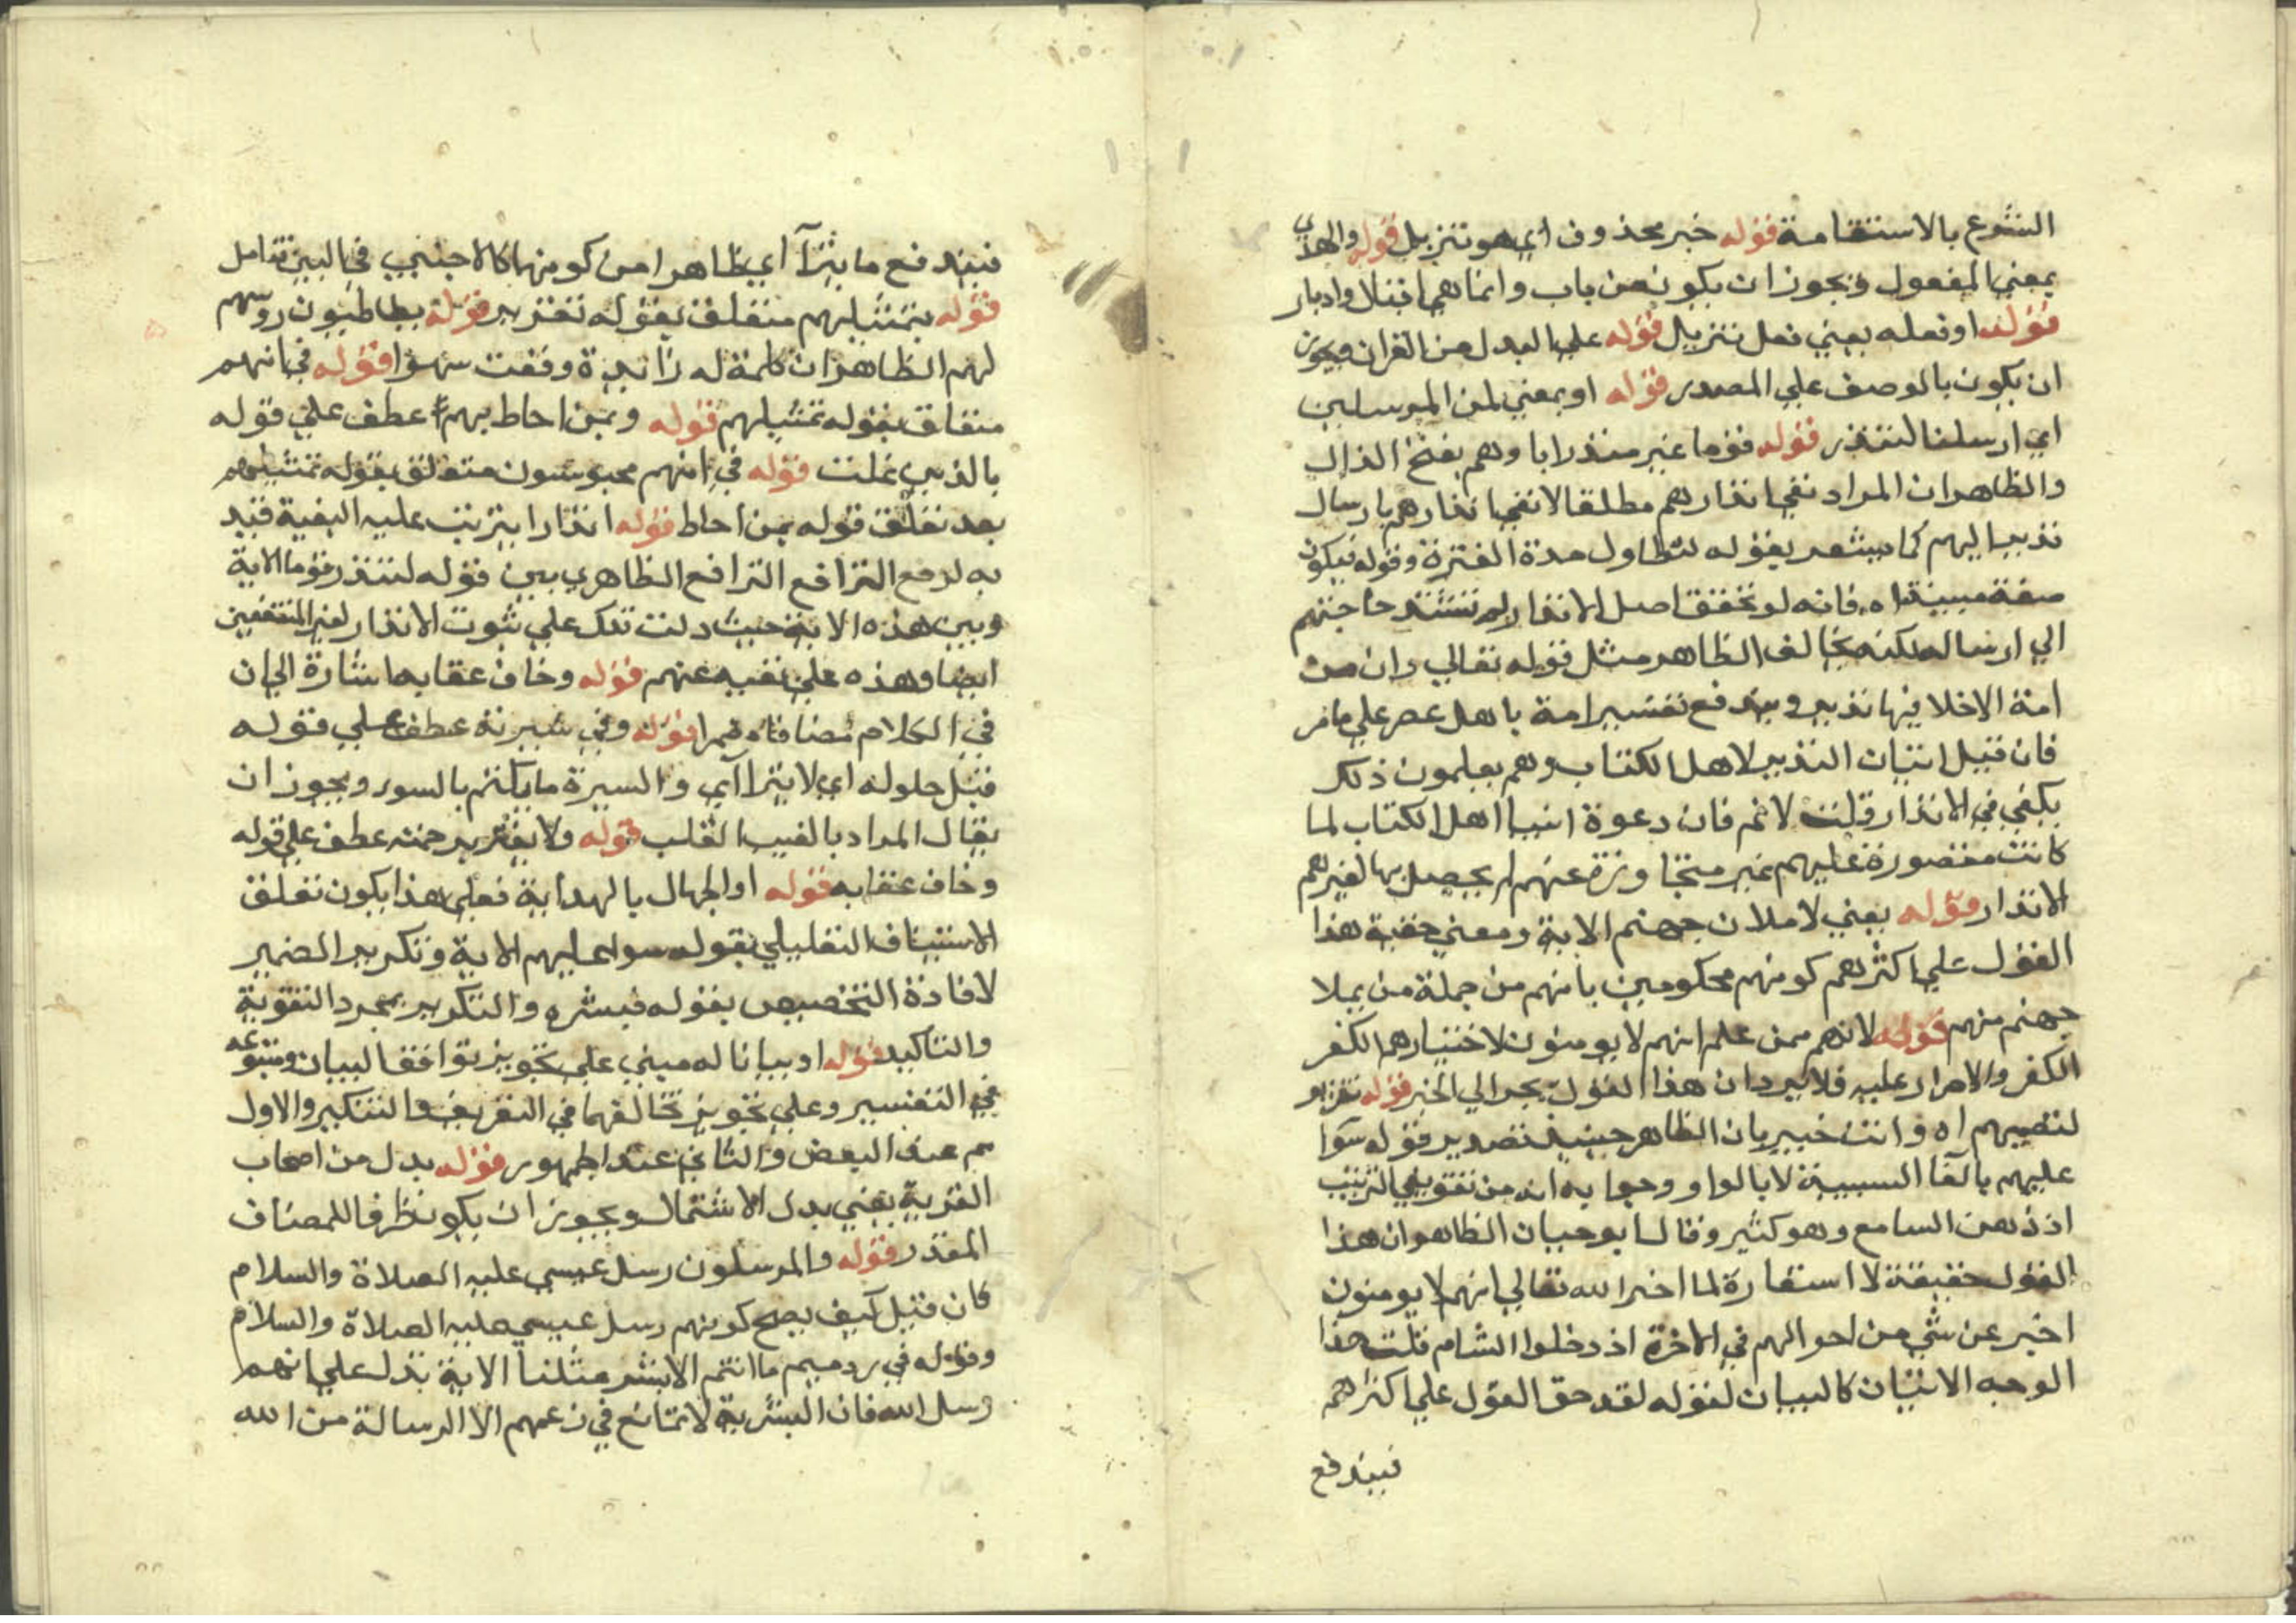 الشرع بالاستقامة قوله خبر محذوف اي هو تنزيل قوله والهدي
بمعني المفعول ويجوز ان يكون من باب وانما هي اقبال وادبار
قوله او فعله يعني نعل تنزيل قوله علي البدل من القران ويجوز
ان يكون بالوصف علي المصدر قوله او بمعني لمن المرسلين
اي ارسلنا لتنذر قوله قوما غير منذر اباوهم بفتح الذال
والظاهر ان المراد نفي انذارهم مطلقا لا نفي انذارهم بارسال
نذير اليهم كما يشعر بقوله لتطاول مدة الفترة وقوله فيكون
صفة مبينة اه فانه لو تحقق اصل الانذار لم تشتد حاجتهم
الي ارساله لكنه يخالف الظاهر مثل قوله تعالي وان من
امة الا خلا فيها نذير ويندفع تفسير امة باهل عصر علي ما مر
فان قيل اتيان النذير لاهل الكتاب وهم يعلمون ذلك
يكفي في الانذار قلت لا ثم فان دعوة انبيا اهل الكتاب لما
كانت مقصورة عليهم غير متجاوزة عنهم لم يحصل بها لغيرهم
الانذار قوله يعني لاملان جهنم الاية ومعني حقية هذا
القول علي اكثرهم كونهم محكومين بانهم من جملة من يملا
جهنم منهم قوله لانهم ممن علم انهم لا يومنون لاختيارهم الكفر
الكفر والاصرار عليه فلا يرد ان هذا القول يجر الي الجبر قوله تقرير
لتصميمهم اه وانت خبير بان الظاهر حينئذ تصدير قوله سوا
عليهم بالفا السببية لا بالواو وجوابه انه من تفويض الترتيب
اذ ذهن السامع وهو كثير وقال ابو حيان الظاهر ان هذا
القول حقيقة لا استعارة لما اخبر الله تعالي انهم لا يومنون
اخبر عن شي من احوالهم في الاخرة اذ دخلوا الشام قلت هذا
الوجه الاتيان كالبيان لقوله لقد حق القول علي اكثرهم
فيندفع
فيندفع ما يترآ اي ظاهرا من كونها كالاجنبي في البين تتامل
قوله بتمثيلهم متعلق بقوله تقرير قوله يطاطيون روسهم
لهم الظاهر ان كلمة له زائدة وقعت سهوا قوله في انهم
متعلق بقوله تمثيلهم قوله وبمن احاط بهم عطف علي قوله
بالذين غلت قوله في انهم محبوسون متعلق بقوله تمثيلهم
بعد تعلق قوله بمن احاط قوله انذارا يترتب عليه البغية قيد
به لرفع الترافع الترافع الظاهري بين قوله لتنذر قوما الاية
وبين هذه الاية حيث دلت تلك علي ثبوت الانذار لغير المنتفعين
ايضا وهذه علي نفيه عنهم قوله وخاف عقابه اشارة الي ان
في الكلام مضافا مقدرا قوله وفي سريرته عطف علي قوله
قبل حلوله اي لا يترا آي والسيرة ما يكتم بالسور ويجوز ان
يقال المراد بالغيب القلب قوله ولا يغتر برحمته عطف علي قوله
وخاف عقابه قوله او الجهال بالهداية فعلي هذا يكون تعلق
الاستيناف التعليلي بقوله سوا عليهم الاية وتكرير الضمير
لافادة التخصيص بقوله فبشره والتكرير بمجرد التقوية
والتاكيد قوله او بيانا له مبني علي تجويز توافق البيان ومتبوعه
في التفسير وعلي تجويز تخالفهما في التعريف والتنكير والاول
م عند البعض والثاني عند الجمهور قوله بدل من اصحاب
القرية يعني بدل الاشتمال ويجوز ان يكون ظرفا للمضاف
المقدر قوله والمرسلون رسل عيسي عليه الصلاة والسلام
كان قيل كيف يصح كونهم رسل عيسي عليه الصلاة والسلام
وقوله في ردهم ما انتم الا بشر مثلنا الاية تدل علي انهم
رسل الله فان البشرية لا تمانع في زعمهم الا الرسالة من الله